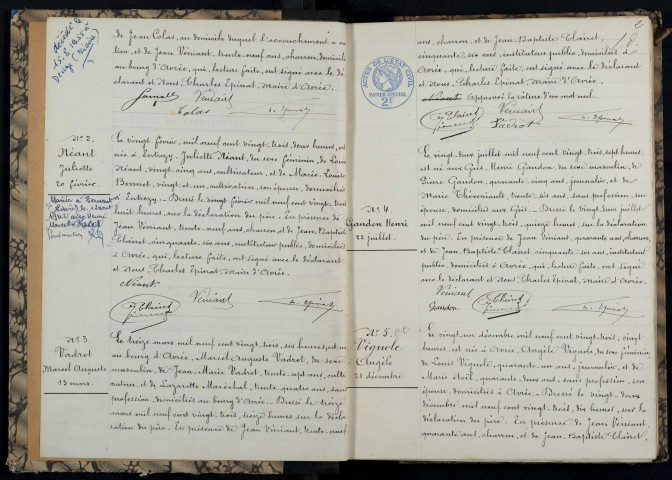 de Jean Colas, au domicile duquel l'accouchement a eu
lieu et de Jean Véniant, trente-neuf ans, charron, domiciliés
au bourg d'Avrée, qui, lecture faite, ont signé avec le dé
clarant et Nous, Charles Epinat, Maire d'Avrée.
Véniant
Colas
C. Epinat
N° 2.
Néant
Juliette
20 février.
Le vingt février, mil neuf cent vingt-trois, deux heures, est
née à Entrezy, Juliette Néant, du sexe féminin, de Louis
Néant, vingt-cinq ans, cultivateur, et de Marie-Louise
Bonnet, vingt et un, cultivatrice, son épouse, domiciliés
à Entrezy. - Dressé le vingt février mil neuf cent vingt-trois
huit heures, sur la déclaration du père. En présence de
Jean Véniant, trente-neuf ans, charron et de Jean-Baptiste
Clairet, cinquante-six ans, instituteur public, domiciliés
à Avrée, qui, lecture faite, ont signé avec le déclarant
et Nous, Charles Epinat, Maire d'Avrée.
Néant
Clairet
Véniant
C. Epinat
N° 3.
Vadrot
Marcel Auguste
13 mars.
Le treize mars mil neuf cent vingt-trois, six heures, est né
au bourg d'Avrée, Marcel Auguste Vadrot, du sexe
masculin, de Jean-Marie Vadrot, trente-sept ans, culti
vateur, et de Lazarette Maréchal, trente-quatre ans, sans
profession, domiciliés au bourg d'Avrée. - Dressé le treize
mars mil neuf cent vingt-trois, treize heures sur la décla
ration du père. En présence de Jean Véniant, trente-neuf
2
ACTES DE L'ETAT CIVIL
PAPIER SPÉCIAL
2F
ans, charron, et de Jean-Baptiste Clairet,
cinquante-six ans, instituteur public, domiciliés à
Avrée, qui, lecture faite, ont signé avec le déclarant
et Nous, Charles Epinat, Maire d'Avrée.
Approuvé la rature d'un mot nul.
Clairet
Véniant
Vadrot
C. Epinat
N° 4.
Gaudon Henri
22 juillet.
Le vingt-deux juillet mil neuf cent vingt-trois, sept heures,
est né aux Guis, Henri Gaudon, du sexe masculin, de
Pierre Gaudon, quarante-cinq ans, journalier, et de
Marie Théveniault, trente-six ans, sans profession, son
épouse, domiciliés aux Guis. - Dressé le vingt-deux juillet
mil neuf cent vingt-trois, quinze heures, sur la déclaration
du père. En présence de Jean Véniant, quarante ans, charron,
et de Jean-Baptiste Clairet, cinquante-six ans, instituteur
public, domiciliés à Avrée, qui, lecture faite, ont signé
avec le déclarant et Nous, Charles Epinat, Maire d'Avrée.
Véniant
Gaudon
Clairet
C. Epinat
N° 5.
Vignole
Angèle
21 décembre
Le vingt-un décembre mil neuf cent vingt-trois, vingt
heures, est née à Avrée, Angèle Vignole, du sexe féminin,
de Louis Vignole, quarante-un ans, journalier, et de
Marie Noël, quarante-deux ans, sans profession, son
épouse, domiciliés à Avrée. - Dressé le vingt-deux
décembre, mil neuf cent vingt-trois, dix heures, sur la
déclaration du père. En présence de Jean Véniant,
quarante ans, charron, et de Jean-Baptiste Clairet,